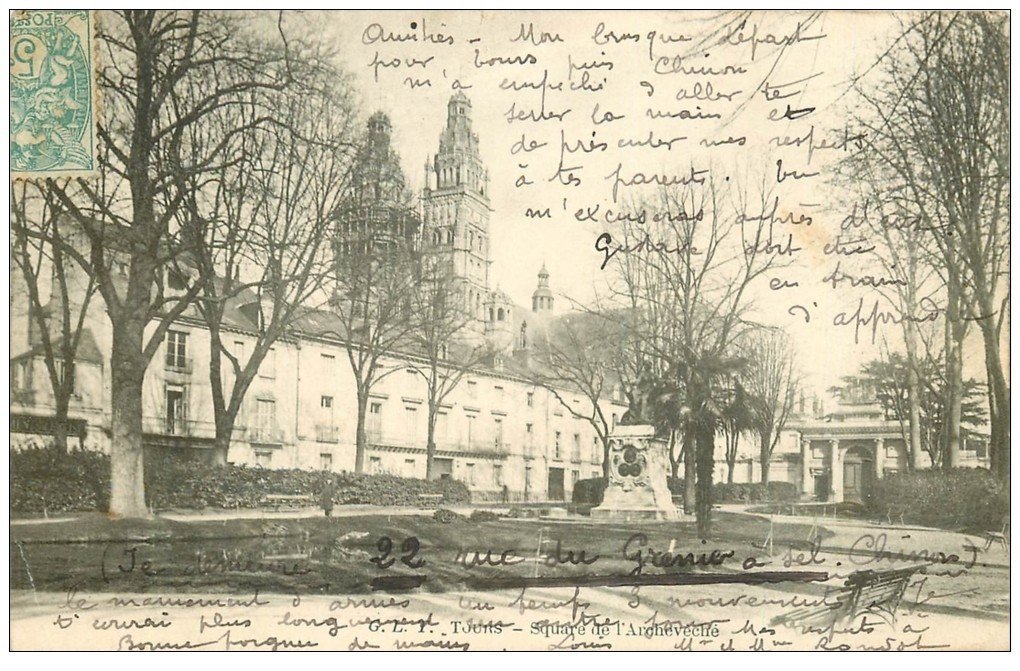 POSTES
5
Amitiés - Mon brusque départ
pour Tours puis Chinon
m'a empêché d'aller te
serrer la main et
de présenter mes respects
à tes parents. Tu
m'excuseras auprès d'eux
Gustave doit être
en train
d'apprendre
(Je demeure 22 rue du Grenier à Sel. Chinon).
le maniement d'armes en 3 mouvements. Je
t'écrirai plus longuement
G. L. T. TOURS - Square de l'Archevêché
Mes respects à
Bonne poignée de mains. Louis Mr et Mme